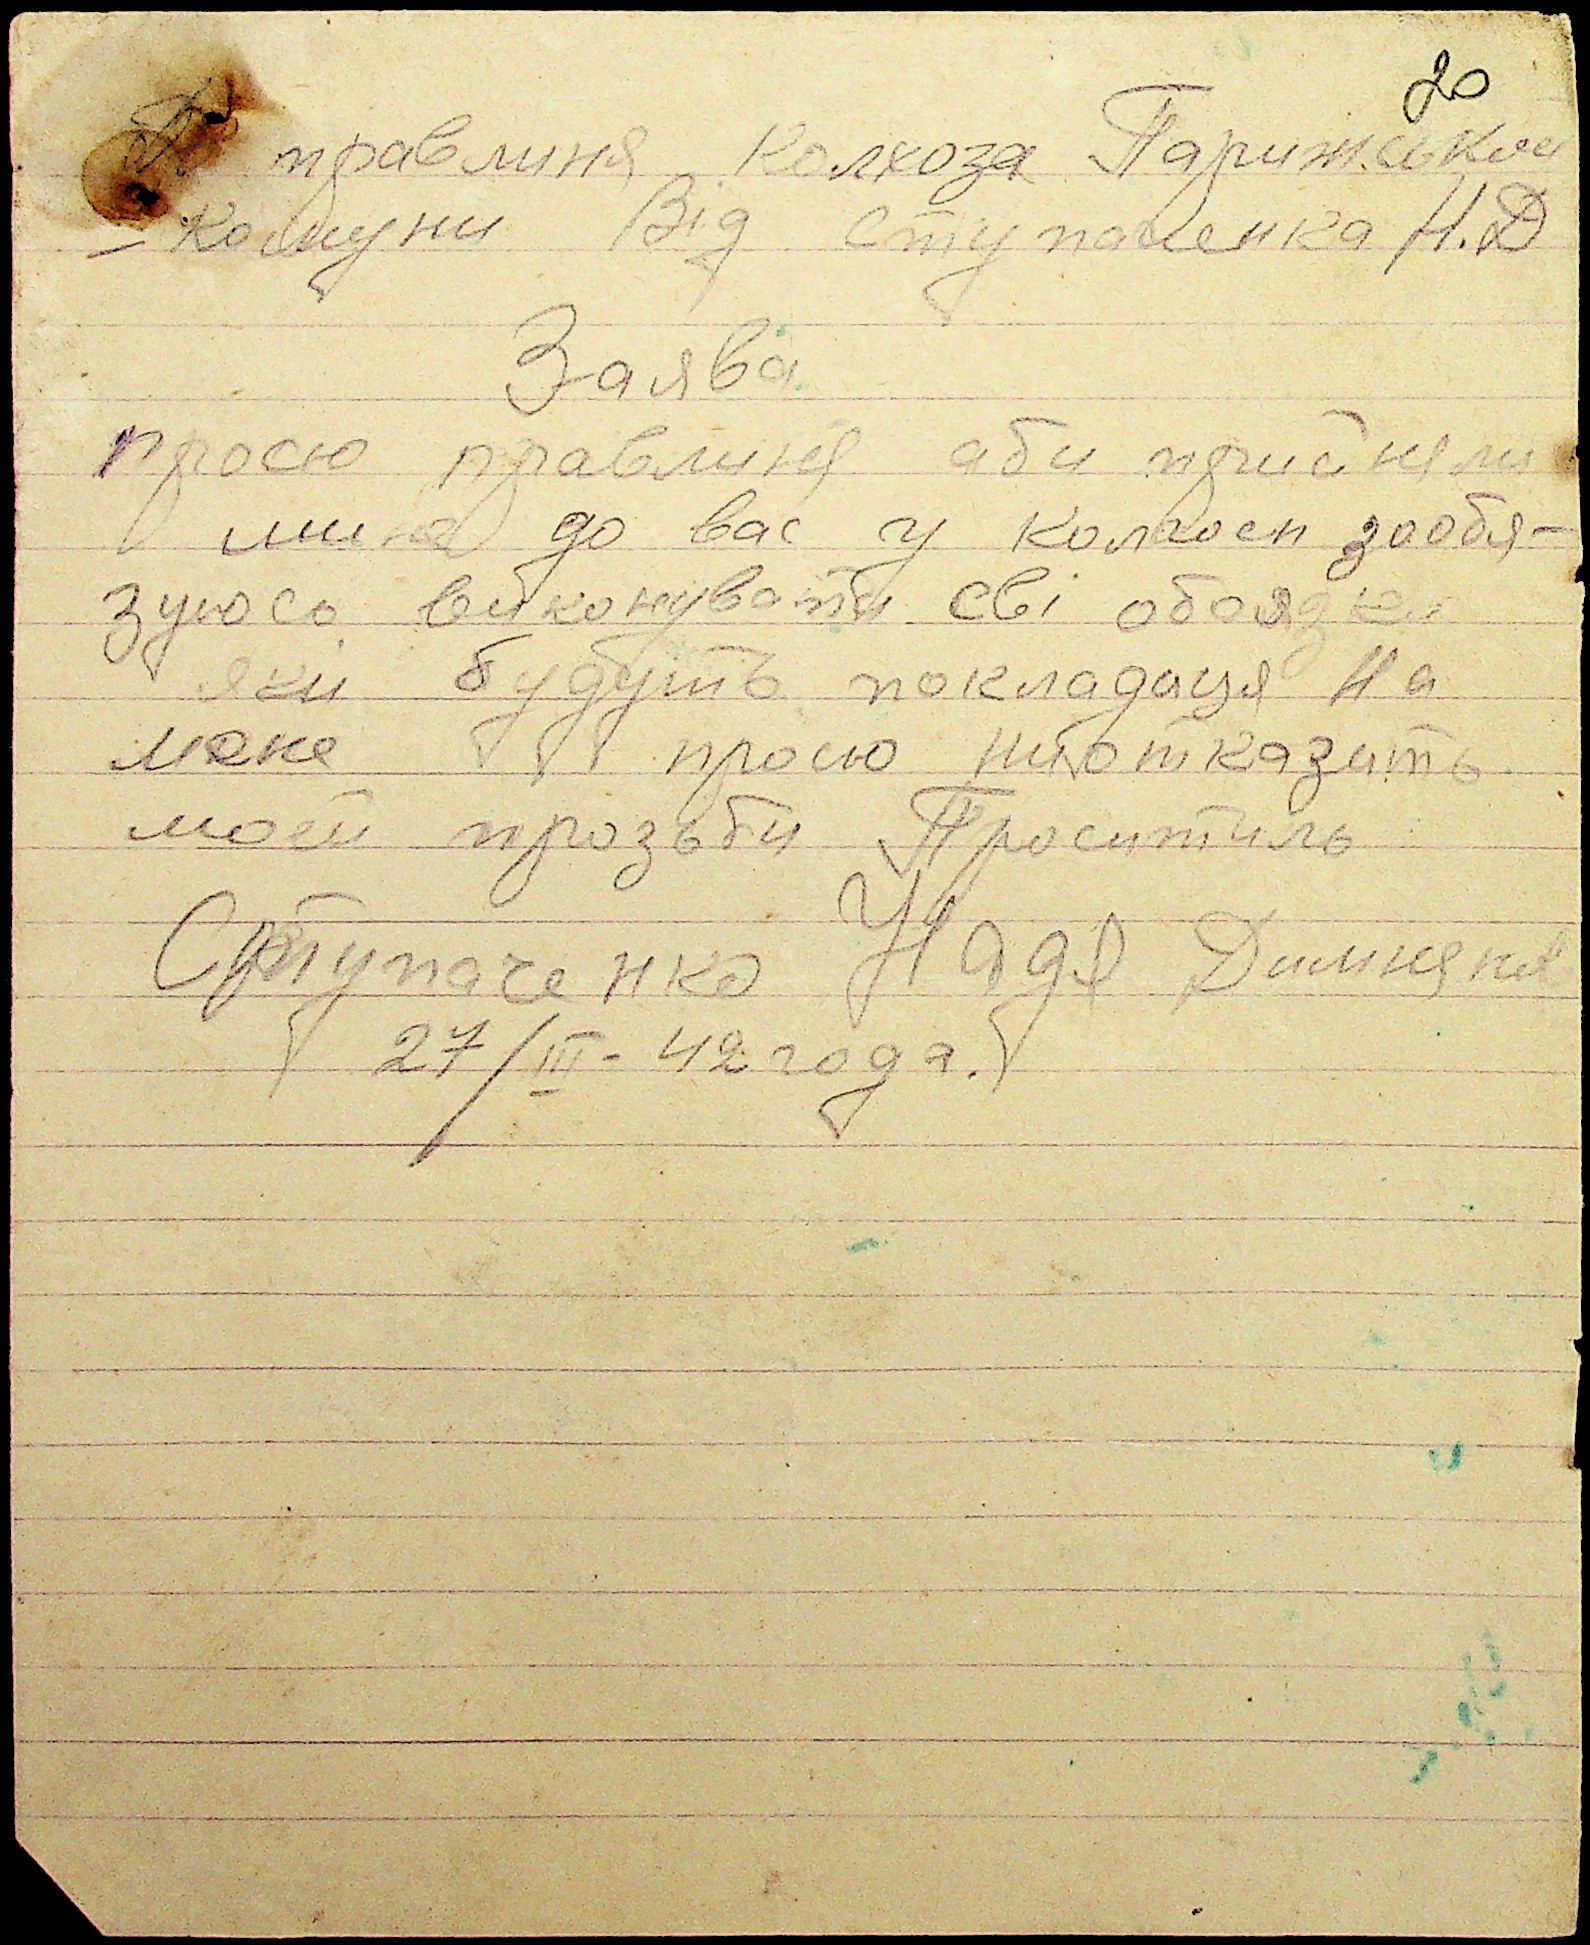 20
правлиня колхоза Парижськои
комуни Від Ступаченка Н.Д
Заява
просю правлиня аби прийняли
мине до вас у колхосп зообя-
зуюсь виконувати сві обоядки
яки будуть покладаця На
мене просю ниотказать
моей прозьби Проситиль
Ступаченко Надя
27/III - 42 года.